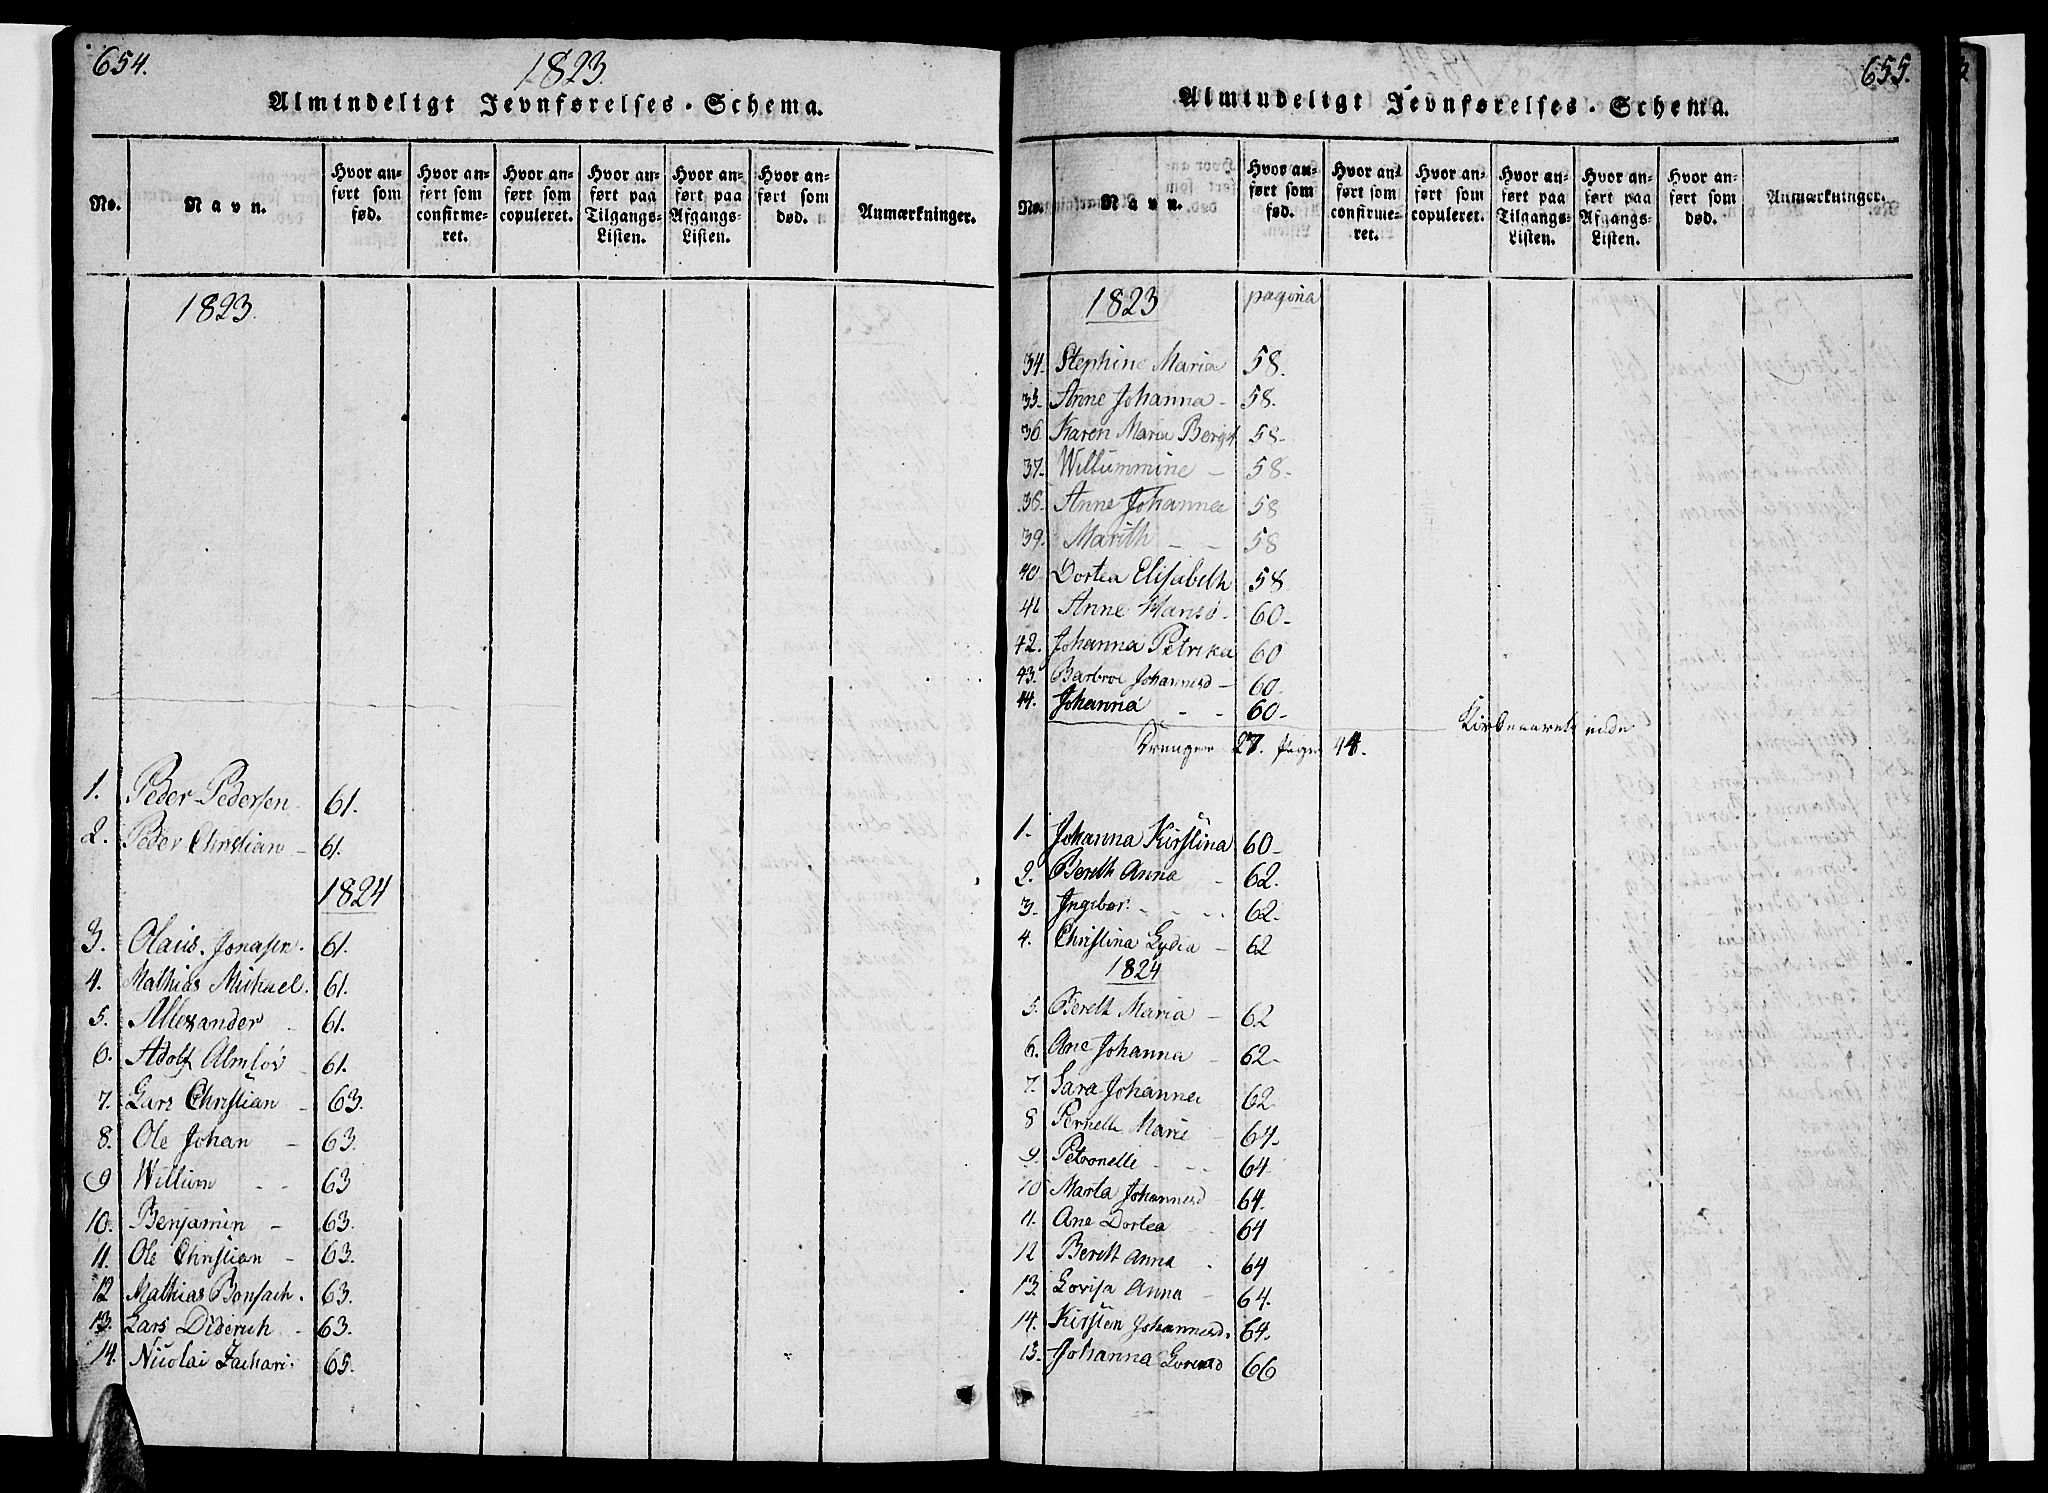 654.
1823.
Almindeligt Jevnførelses-Schema.
No.
Navn.
Hvor anført som fød.
Hvor anført som confirmeret.
Hvor anført som copuleret.
Hvor anført paa Tilgangs-Listen.
Hvor anført paa Afgangs-Listen.
Hvor anført som død.
Anmærkninger.
1823.
1. Peder Pedersen 61.
2. Peder Christian - 61.
1824
3. Olaus Jonasen. 61.
4. Mathias Michael. 61.
5. Allexander 61.
6. Adolf Almlov 61.
7. Lars Christian - 63.
8. Ole Johan - 63.
9 Willum - - 63
10. Benjamin - 63.
11. Ole Christian - 63.
12 Mathias Bonsach. 63.
13. Lars Diderich - 63.
14. Nicolai Zachari: 65.
655.
Almindeligt Jevnførelses-Schema.
No.
Navn.
Hvor anført som fød.
Hvor anført som confirmeret.
Hvor anført som copuleret.
Hvor anført paa Tilgangs-Listen.
Hvor anført paa Afgangs-Listen.
Hvor anført som død.
Anmærkninger.
1823 pagina
34. Stephine Maria 58.
35. Anne Johanna - 58.
36. Karen Maria Bergt 58-
37. Willummine - 58-
38. Anne Johannee 58
39. Marith - - 58
40 Dortea Elisabeth 58
41 Anne Hansd. 60-
42. Johanna Petrika 60
43. Barbroe Johannesd - 60.
44. Johanna - - 60-
27. 44.
1. Johanna Kirstina 60-
2. Bereth Anna - 62.
3. Ingebor: - - - 62-
4. Christina Lydia - 62
1824
5. Bereth Maria - 62
6. Ane Johanna - 62-
7. Sara Johannee 62
8 Pernelle Marie - 64-
9. Petronelle - - - 64
10 Marta Johannesd 64.
11. Ane Dortea 64
12 Bereth Anna - 64
13. Lovisa Anna - 64.
14. Kirsten Johannesd. 64.
15. Johanna 66